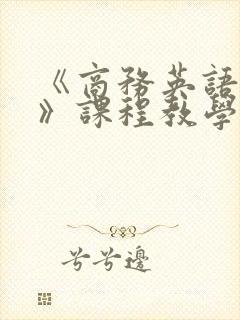 《商務英語
》課程教學
兮兮邊